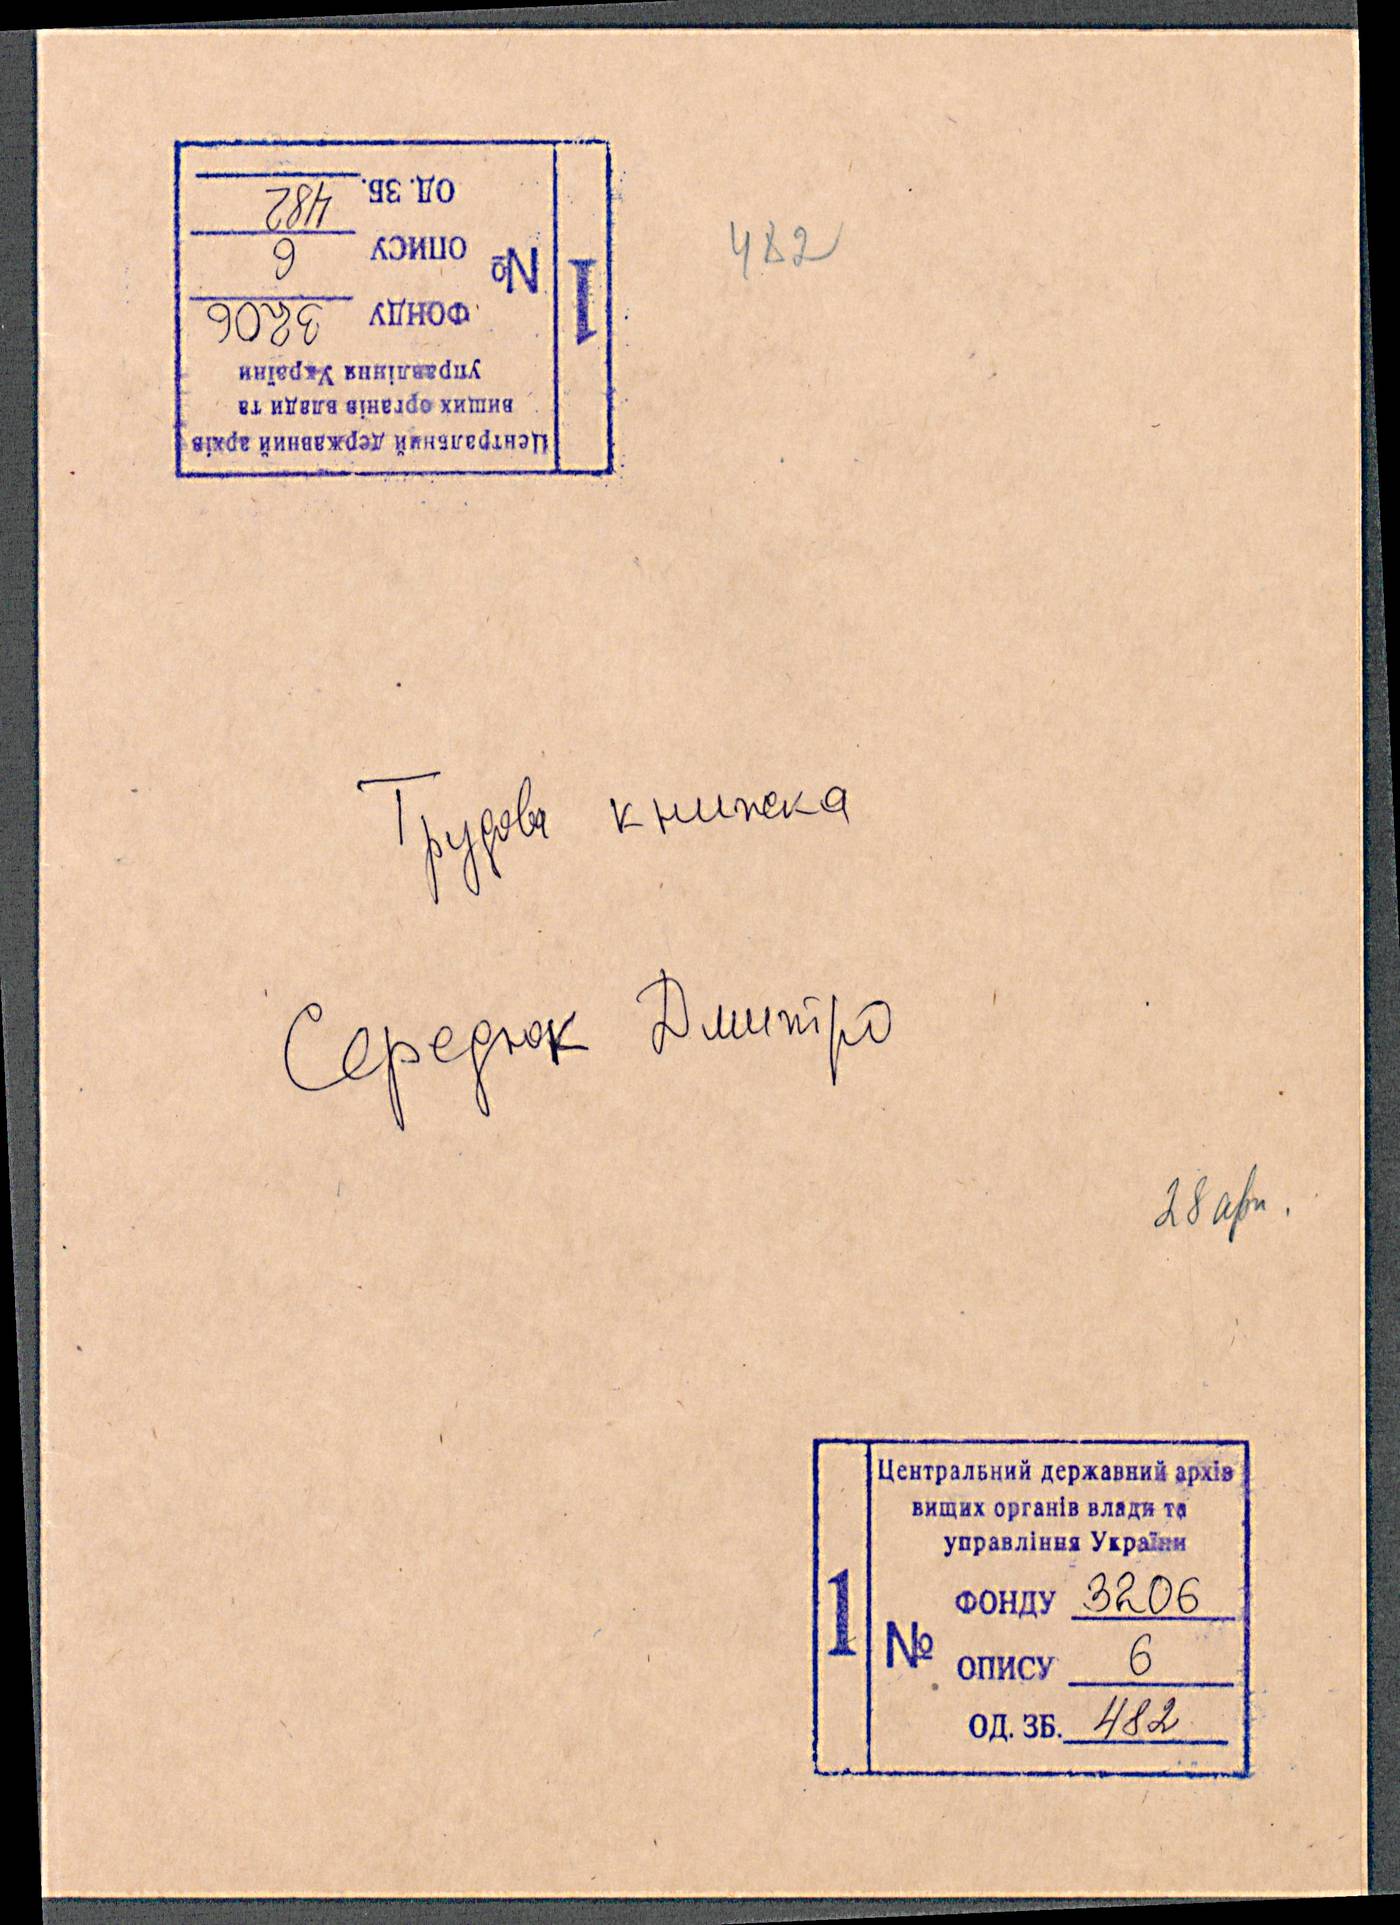 Центральний державний архів
вищих органів влади та
управління України
1
№
ФОНДУ 3206
ОПИСУ 6
ОД. ЗБ. 482
482
Трудова книжка
Середюк Дмитро
28 арк.
Центральний державний архів
вищих органів влади та
управління України
1
№
ФОНДУ 3206
ОПИСУ 6
ОД. ЗБ. 482